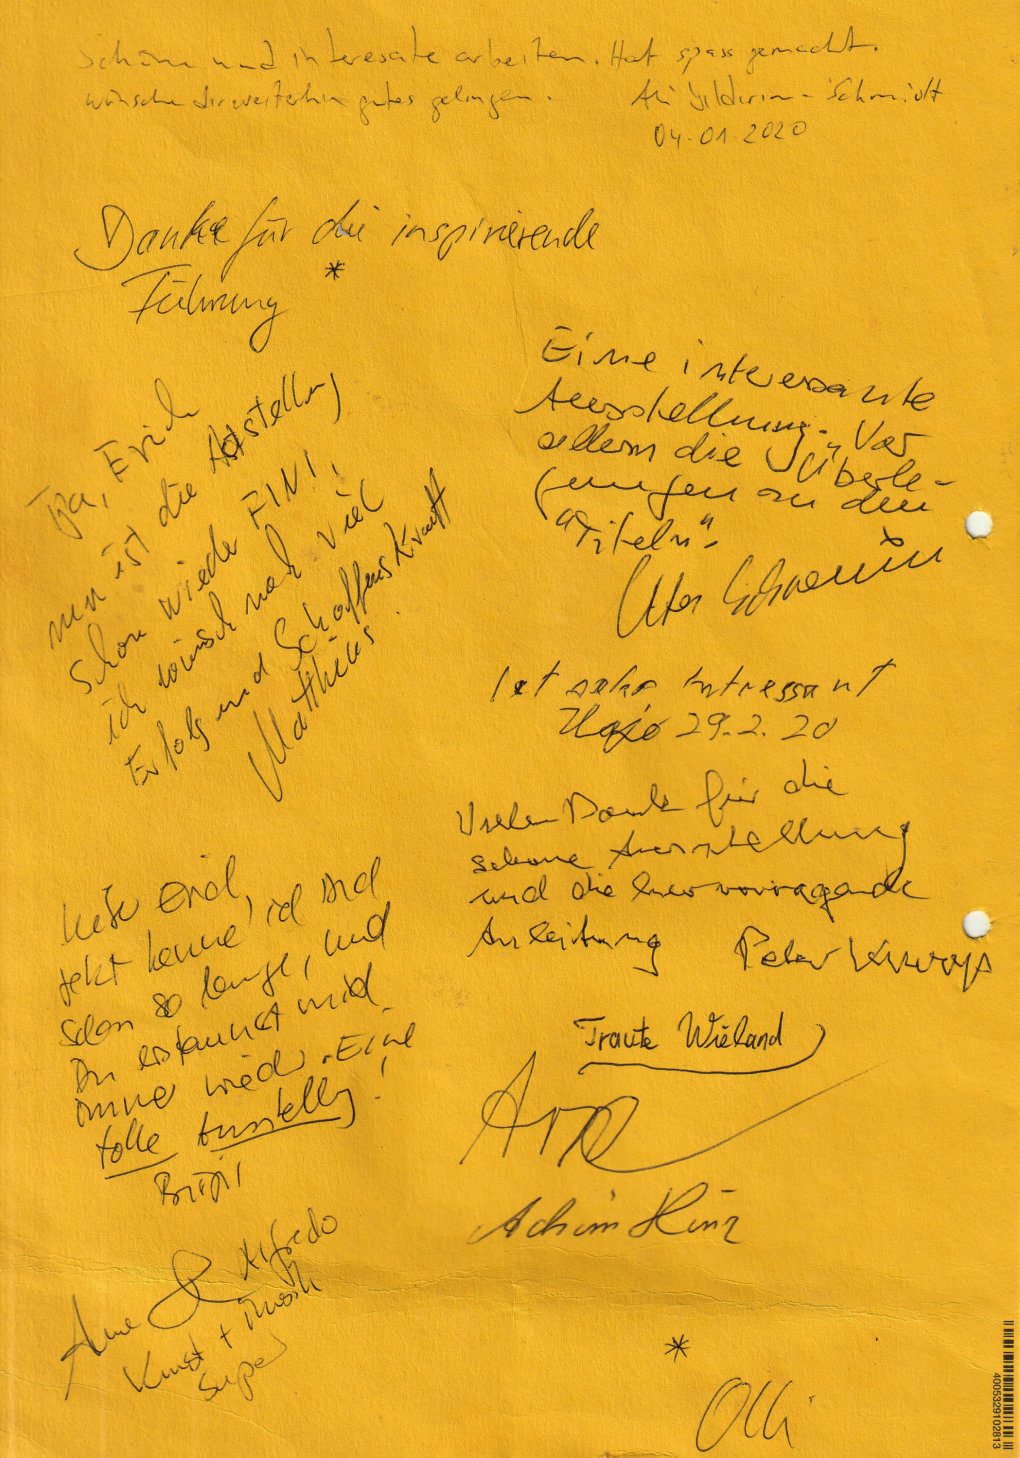 Schöne und interesante arbeiten. Hat spass gemacht.
wünsche dir weiterhin gutes gelingen.
Ali Yildirim-Schmidt
04-01-2020
Danke für die inspirierende
Führung *
Eine interessante
Ausstellung. Vor
allem die "Überle-
gungen zu den
"Titeln".
Uta
Tja, Erich
nun ist die Austellung
schon wieder FINI!
ich wünsch noch viel
Erfolg und Schaffenskraft
Matthias.
Ist sehr intressant
Hajo 29.2.20
Vielen Dank für die
schöne Ausstellung
und die hervorragende
Anleitung
Peter
Liebe Erich,
jetzt kenne ich Dich
schon so lange, und
Du erstaunst mich
immer wieder. Eine
tolle Ausstellg!
Birgit
Traute Wieland
Achim Hinz
Anne & Alfredo
Kunst + Musik
Super
*
Olli
4005329102813